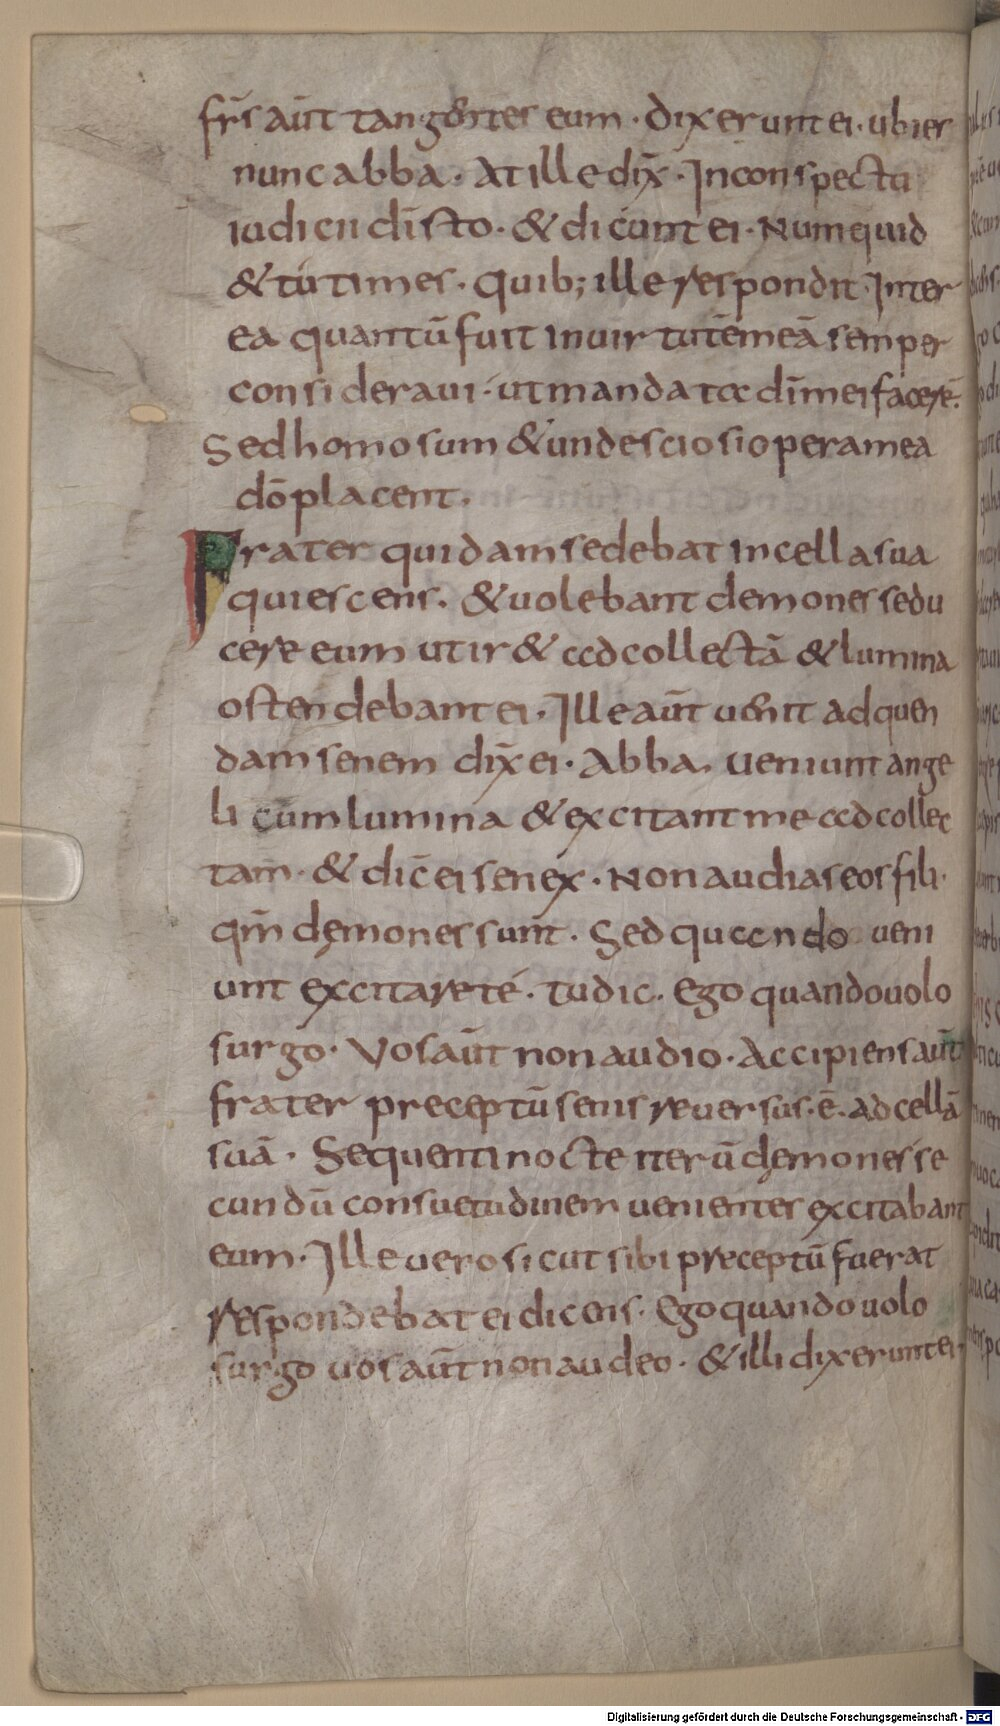 fr̄s aūt tangentes eum · dixerunt ei · ubi es
nunc abba · At ille dix̄ · In conspectu
iudicii d̄i sto · & dicunt ei · Numquid
& tu times · Quib; ille respondit · Inter
ea quantū fuit in uirtutē meā semper
consideraui · ut mandata d̄i mei facerē ·
Sed homo sum & unde scio si opera mea
d̄o placent ·
Frater quidam sedebat in cella sua
quiescens · & uolebant demones sedu
cere eum ut ir& ad collectā & lumina
ostendebant ei · Ille aūt uenit ad quen
dam senem dix̄ ei · Abba · ueniunt ange
li cum lumina & excitant me ad collec
tam · & dic̄ ei senex · Non audias eos fili ·
qm̄ dęmones sunt · Sed quando ueni
unt excitare te · tu dic · Ego quando uolo
surgo · Vos aūt non audio · Accipiens aūt
frater preceptū senis reuersus · ē · ad cellā
suā · Sequenti nocte iterū dęmones se
cundū consuetudinem uenientes excitabant
eum · Ille uero sicut sibi preceptū fuerat
respondebat ei dicens · Ego quando uolo
surgo uos aūt non audeo · & illi dixerunt ei ·
Digitalisierung gefördert durch die Deutsche Forschungsgemeinschaft - DFG